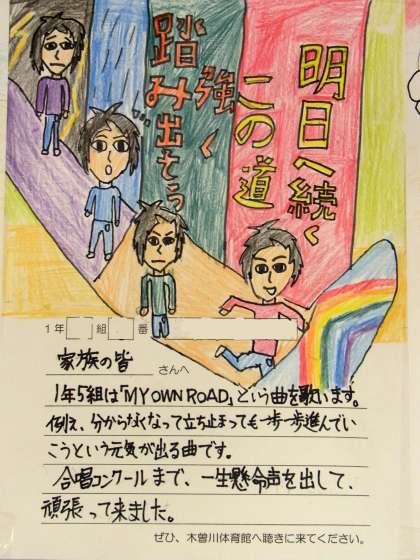 明日へ続く
この道
強く
踏み出そう
1年 組 番
家族の皆 さんへ
1年5組は「MY OWN ROAD」という曲を歌います。
例え、分からなくなって立ち止まっても一歩一歩進んでい
こうという元気が出る曲です。
合唱コンクールまで、一生懸命声を出して、
頑張って来ました。
ぜひ、木曽川体育館へ聴きに来てください。